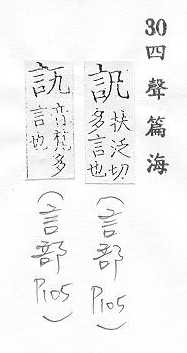 30四聲篇海
訉扶泛切
多言也
(言部P105)
音梵多
言也
(言部P105)